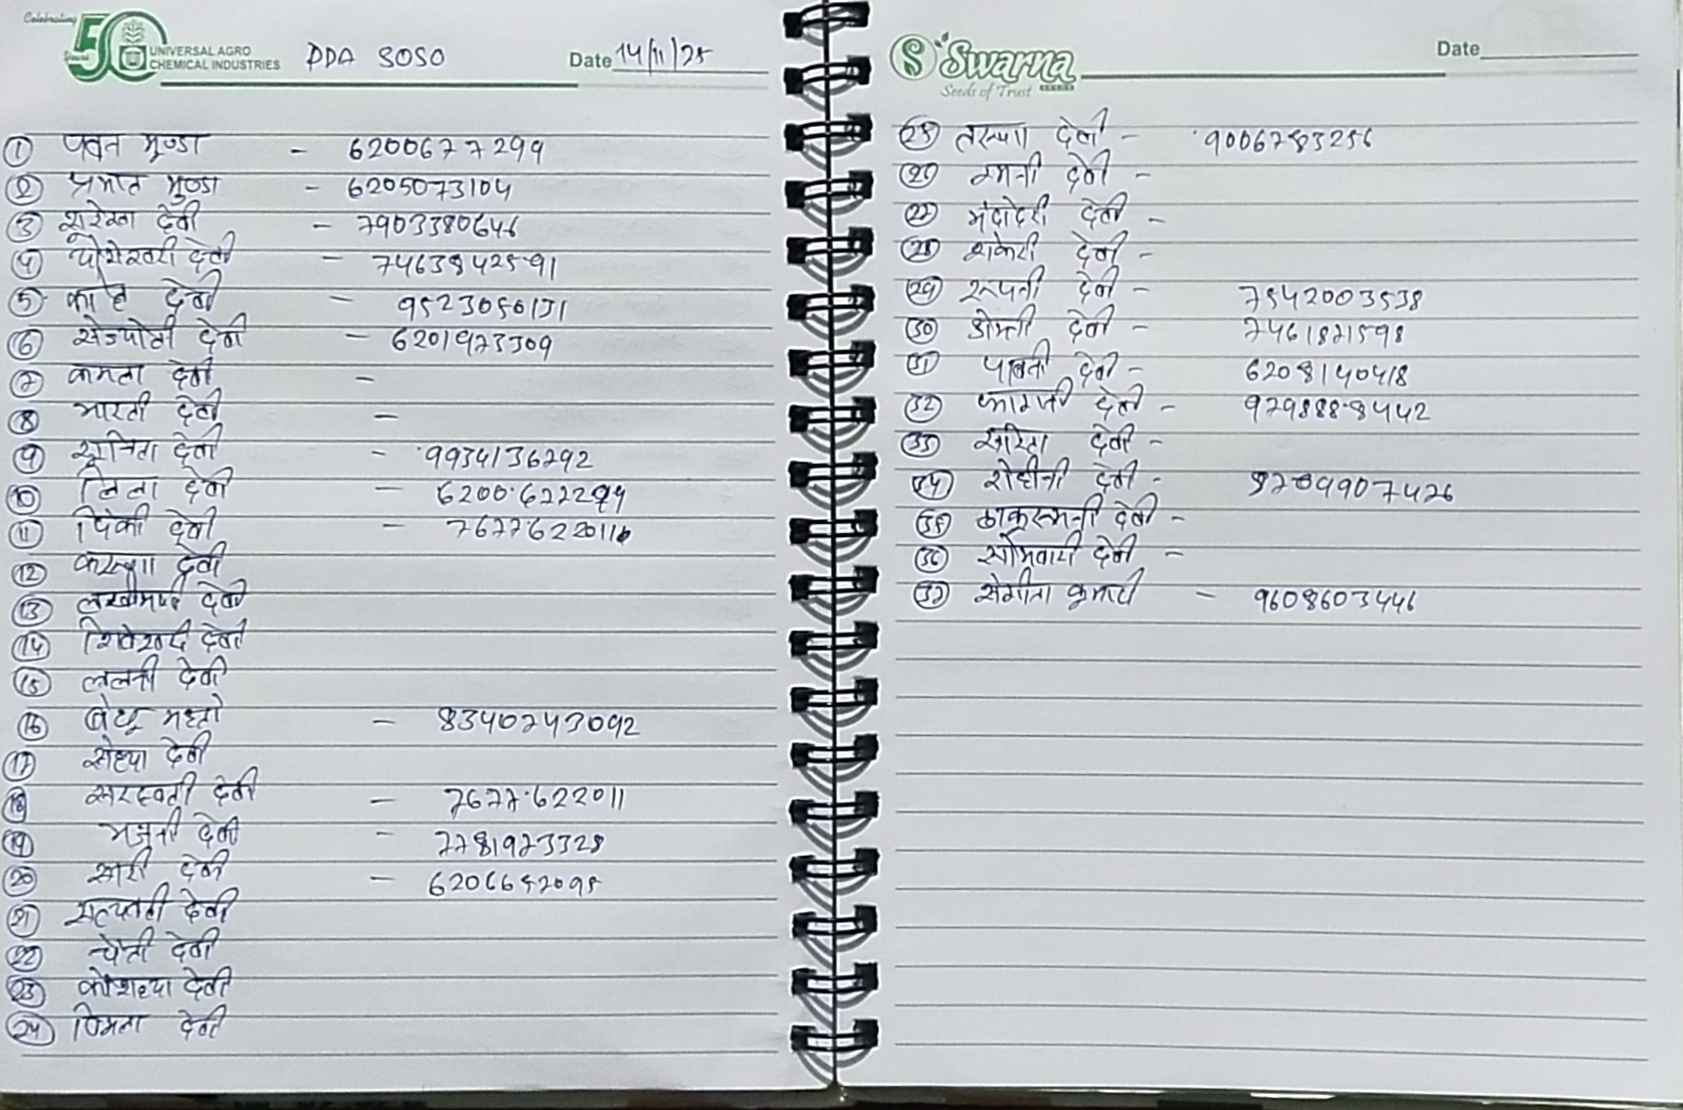 Celebrating
50
Years
UNIVERSAL AGRO
CHEMICAL INDUSTRIES
PDA SOSO
Date 14/11/25
① पवन मुण्डा - 6200677299
② प्रभात मुण्डा - 6205073104
③ सुरेखा देवी - 7903380646
④ देवी - 7463842591
⑤ देवी - 9523050131
⑥ देवी - 6201973309
⑦ कमला देवी -
⑧ भारती देवी -
⑨ सुचिता देवी - 9934136792
⑩ देवी - 6200622299
⑪ पिंकी देवी - 7677622011
⑫ करूणा देवी
⑬ देवी
⑭ देवी
⑮ ललनी देवी
⑯ महतो - 83407243092
⑰ देवी
⑱ सरस्वती देवी - 7677622011
⑲ देवी - 7781973328
⑳ देवी - 6206652095
㉑ देवी
㉒ चैती देवी
㉓ कौशल्या देवी
㉔ विमला देवी
Swarna
SEEDS
Seeds of Trust
Date
㉕ देवी - 9006783256
㉖ देवी -
㉗ मंदोदरी देवी -
㉘ देवी -
㉙ रूपनी देवी - 7542003538
㉚ देवी - 7461871598
㉛ देवी - 6208140418
㉜ देवी - 9798888442
㉝ सरिता देवी -
㉞ रोहीनी देवी -
㉟ ठाकुरमनी देवी -
㊱ सोमवारी देवी -
㊲ संगीता कुमारी - 9608603446